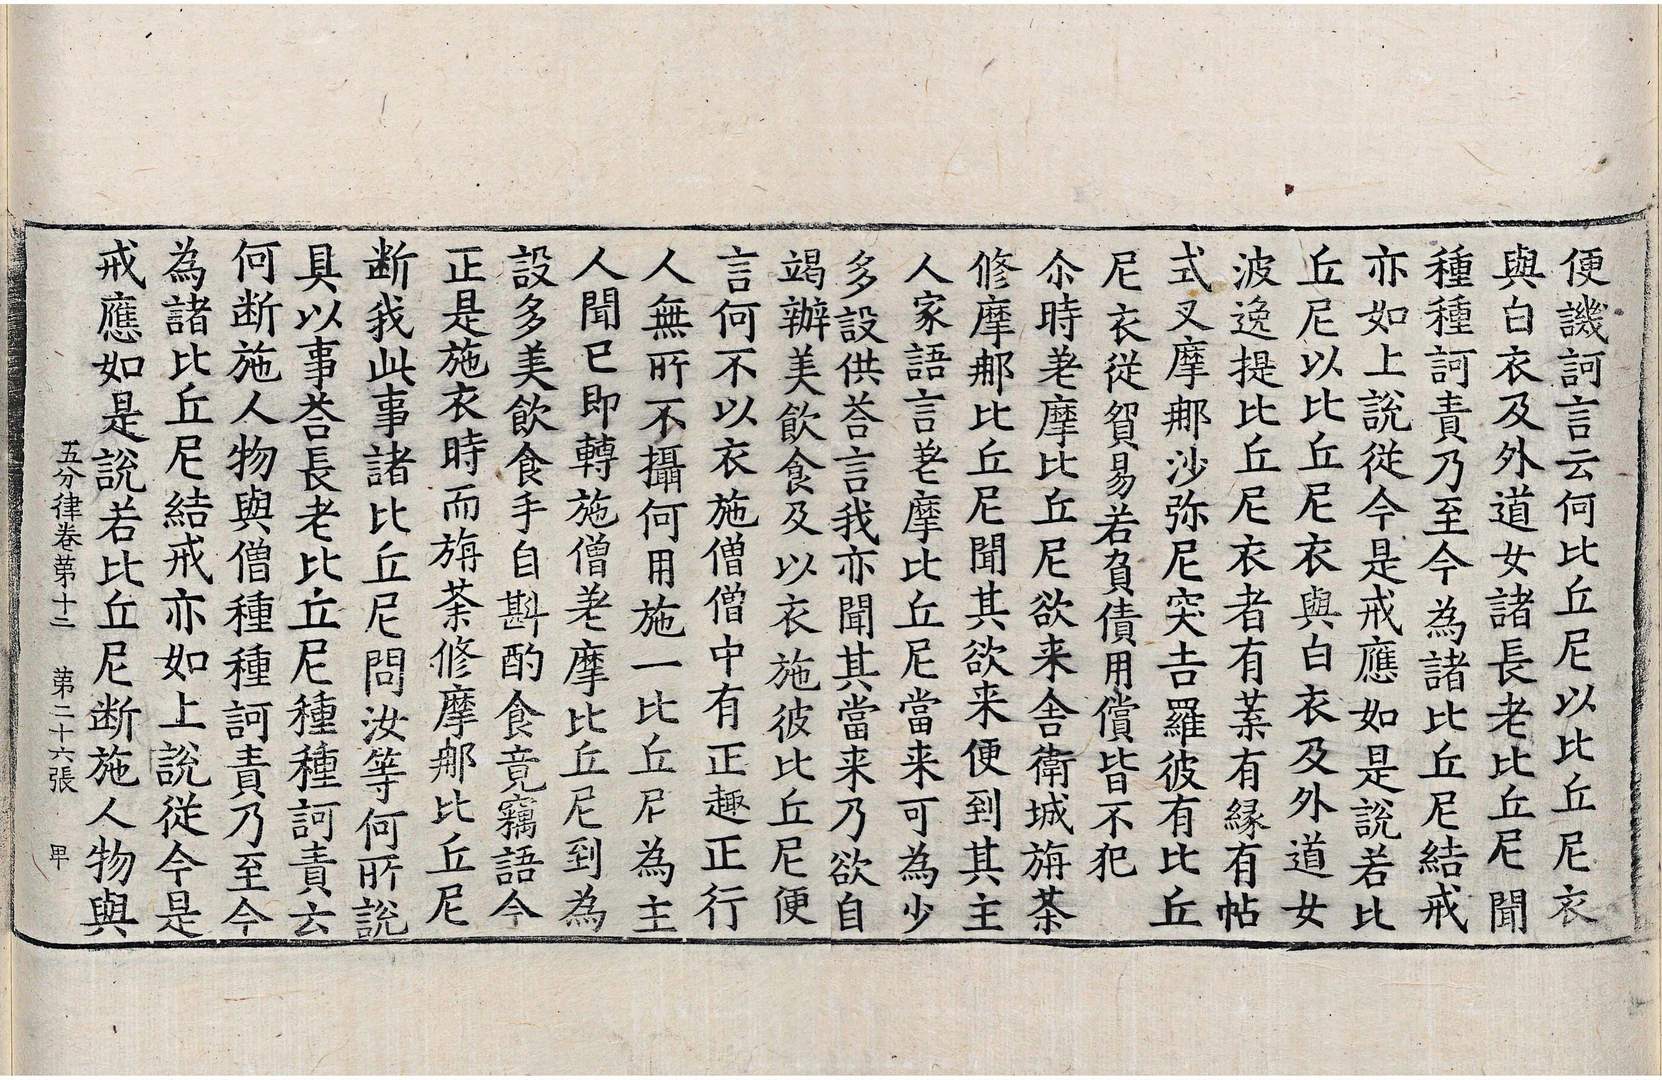 便譏訶言云何比丘尼以比丘尼衣
與白衣及外道女諸長老比丘尼聞
種種訶責乃至今為諸比丘尼結戒
亦如上說從今是戒應如是說若比
丘尼以比丘尼衣與白衣及外道女
波逸提比丘尼衣者有葉有緣有帖
式叉摩那沙弥尼突吉羅彼有比丘
尼衣從貿易若負債用償皆不犯
尒時差摩比丘尼欲来舍衛城旃荼
修摩那比丘尼聞其欲来便到其主
人家語言差摩比丘尼當来可為少
多設供荅言我亦聞其當来乃欲自
竭辦美飲食及以衣施彼比丘尼便
言何不以衣施僧僧中有正趣正行
人無所不攝何用施一比丘尼為主
人聞已即轉施僧差摩比丘尼到為
設多美飲食手自斟酌食竟竊語今
正是施衣時而旃荼修摩那比丘尼
断我此事諸比丘尼問汝等何所說
具以事荅長老比丘尼種種訶責云
何断施人物與僧種種訶責乃至今
為諸比丘尼結戒亦如上說從今是
戒應如是說若比丘尼断施人物與
五分律卷苐十二 苐二十六張 甲